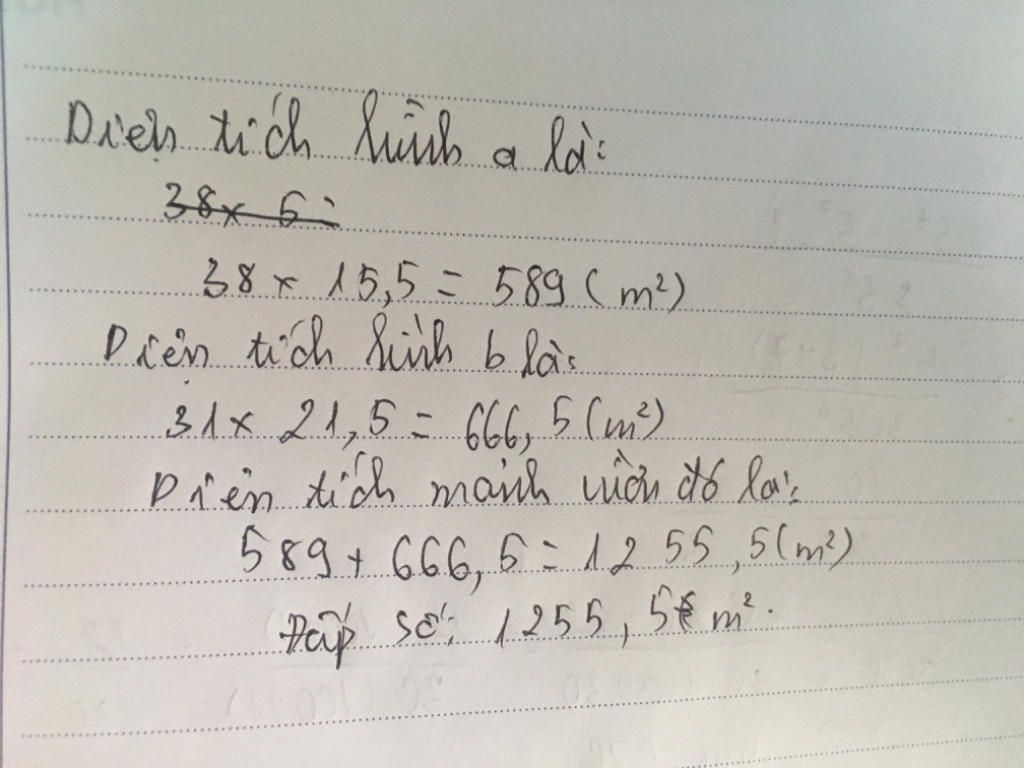 Diện tích hình a là:
38 x 5 =
38 x 15,5 = 589 (m²)
Diện tích hình b là:
31 x 21,5 = 666,5 (m²)
Diện tích mảnh vườn đó là:
589 + 666,5 = 1255,5 (m²)
Đáp số: 1255,5 m².